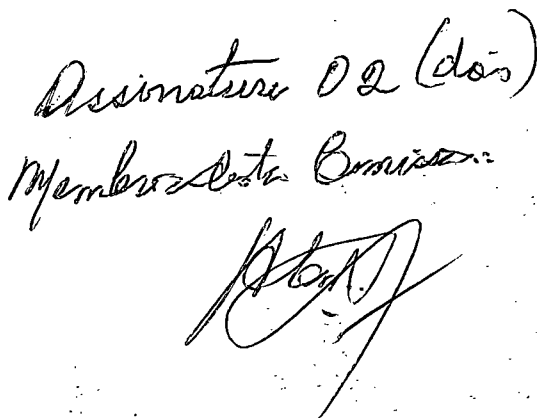 Assinatura 02 (dois)
Membros desta Comissão.